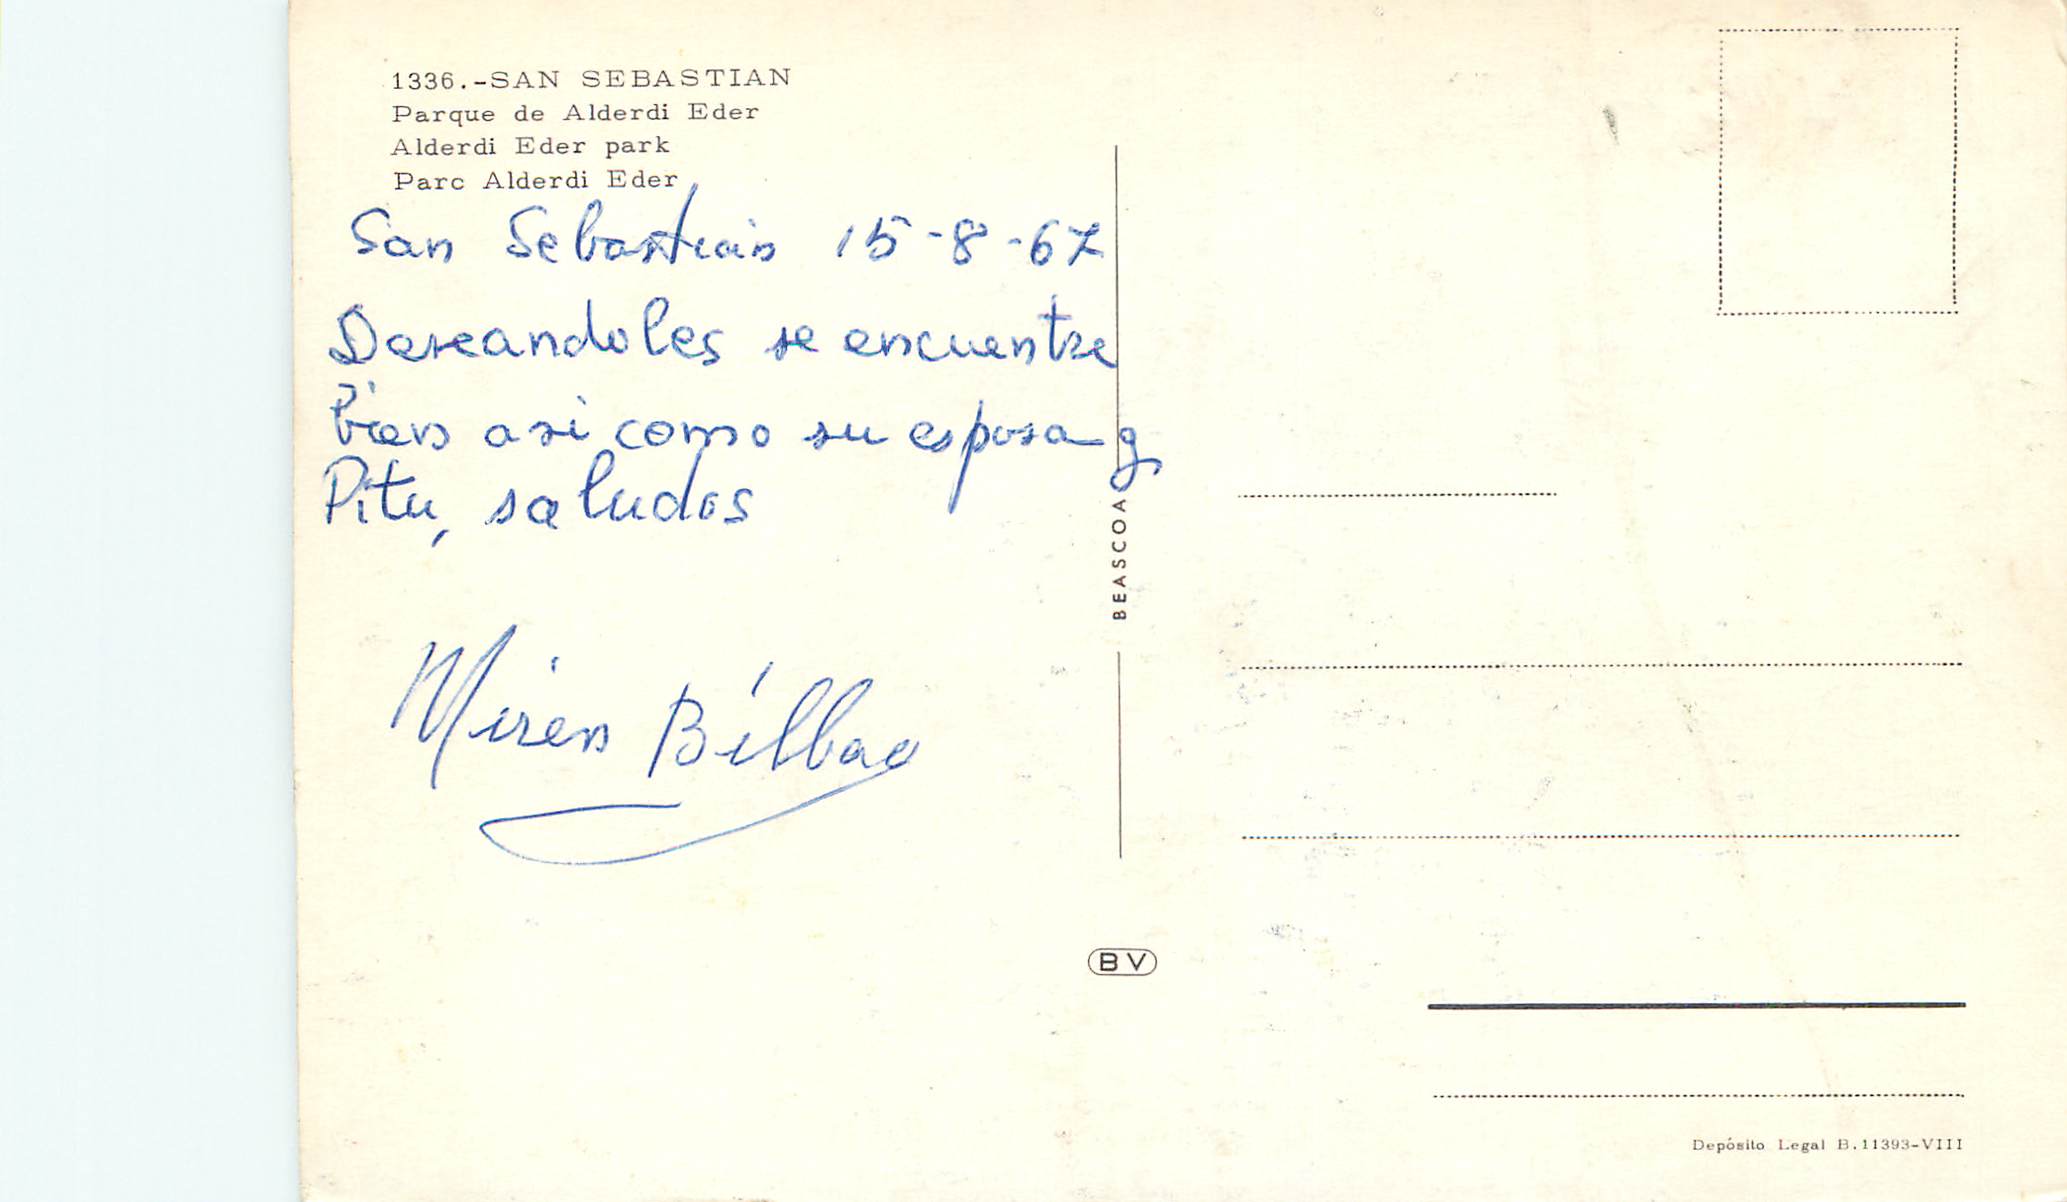 1336.-SAN SEBASTIAN
Parque de Alderdi Eder
Alderdi Eder park
Parc Alderdi Eder
San Sebastian 15-8-67
Deseandoles se encuentre
bien asi como su esposa y
Pitu, saludos
Miren Bilbao
BEASCOA
BV
Depósito Legal B.11393-VIII